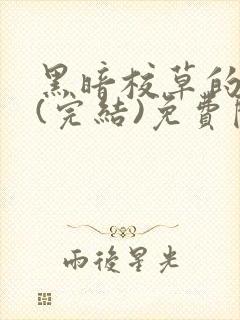 黑暗校草的
(完結)免費
雨後星光